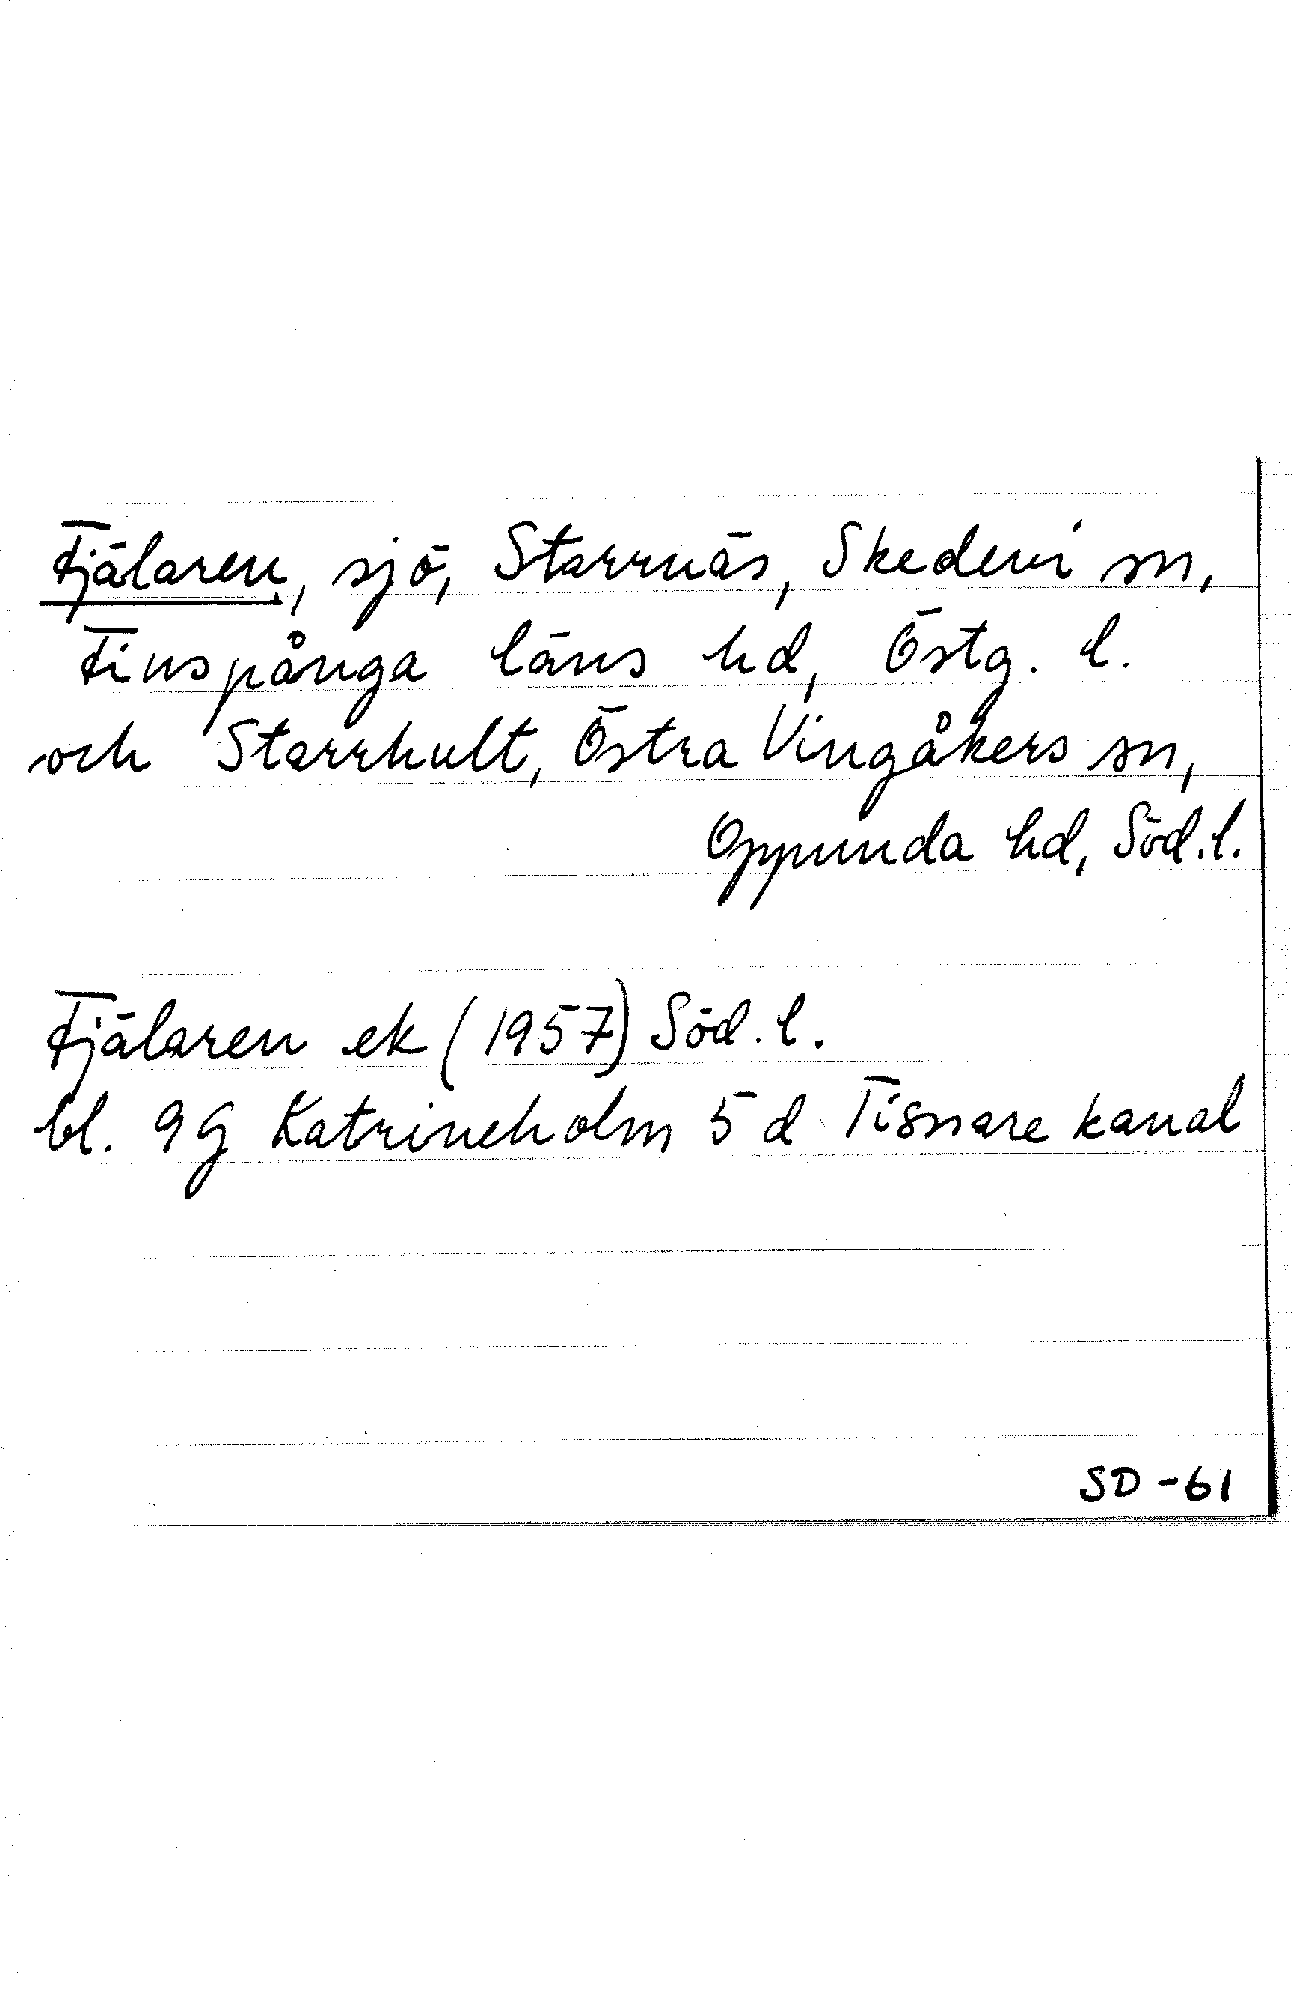 Fjälaren, sjö, Starrnäs, Skedevi sn,
Finspånga läns hd, Östg. l.
och Starrhult, Östra Vingåkers sn,
Oppunda hd, Söd. l.
Fjälaren ek (1957) Söd. l.
bl. 9G Katrineholm 5 d Tisnare kanal
SD -61